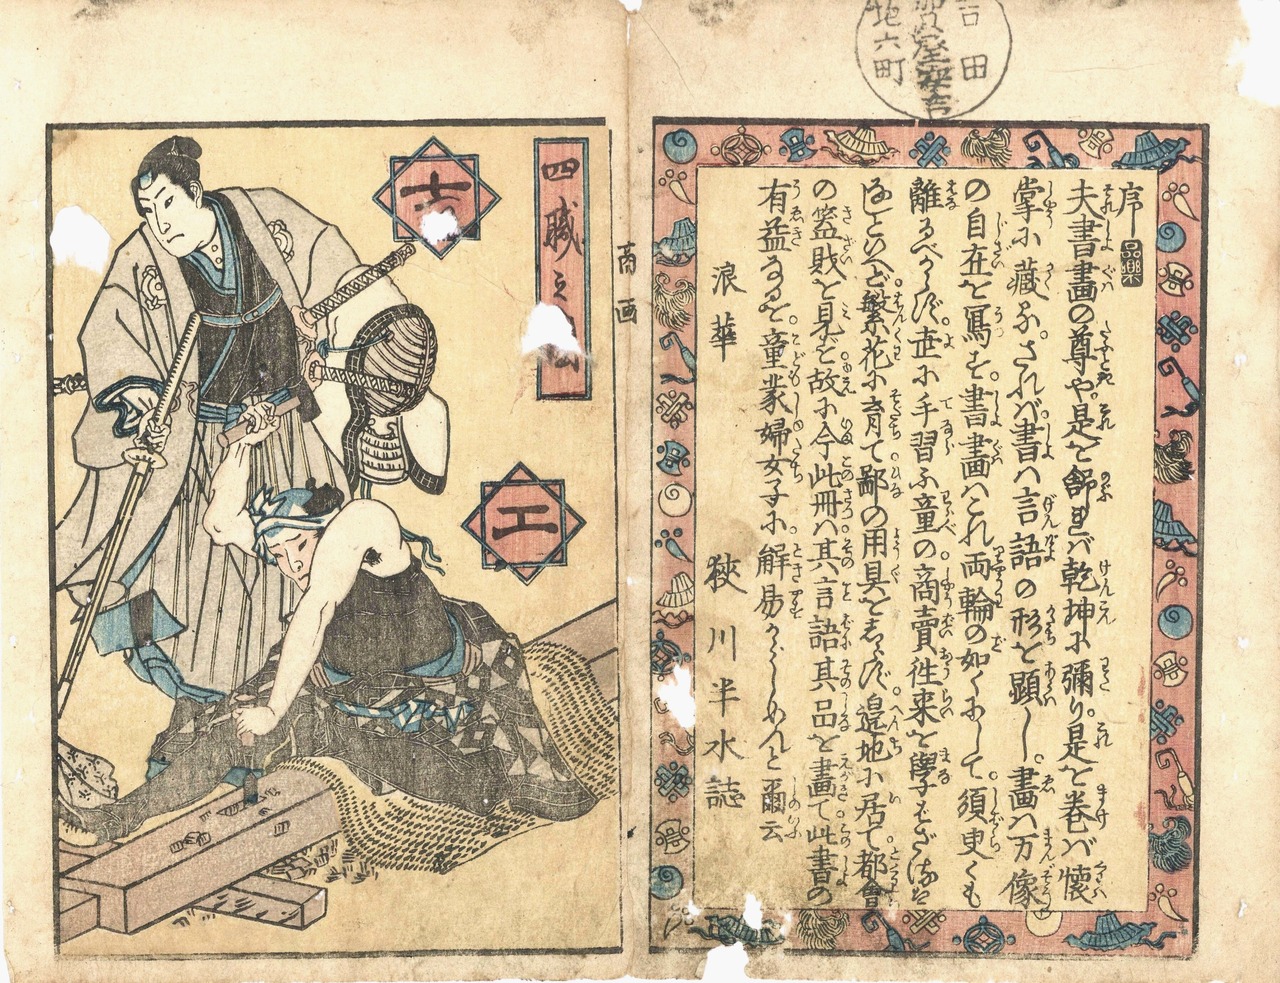 吉田
町
序
夫書畫の尊や是を舒れバ乾坤に彌り是を巻バ懐
掌に藏る。されバ書ハ言語の形を顕し。畫ハ万像
の自在を寫を。書畫ハこれ両輪の如くにして。須臾くも
離るべからず。世に手習ふ童の商賣往来を學ばざるは
なしといへど。繁花に育て鄙の用具をしらず。邉地に居て都會
の盗賊を見ず。故に今此冊ハ其言語其品を畫て此書の
有益なるを。童蒙婦女子に。解易からしめんと爾云
浪華 狹川半水誌
四職之
商画
士
工